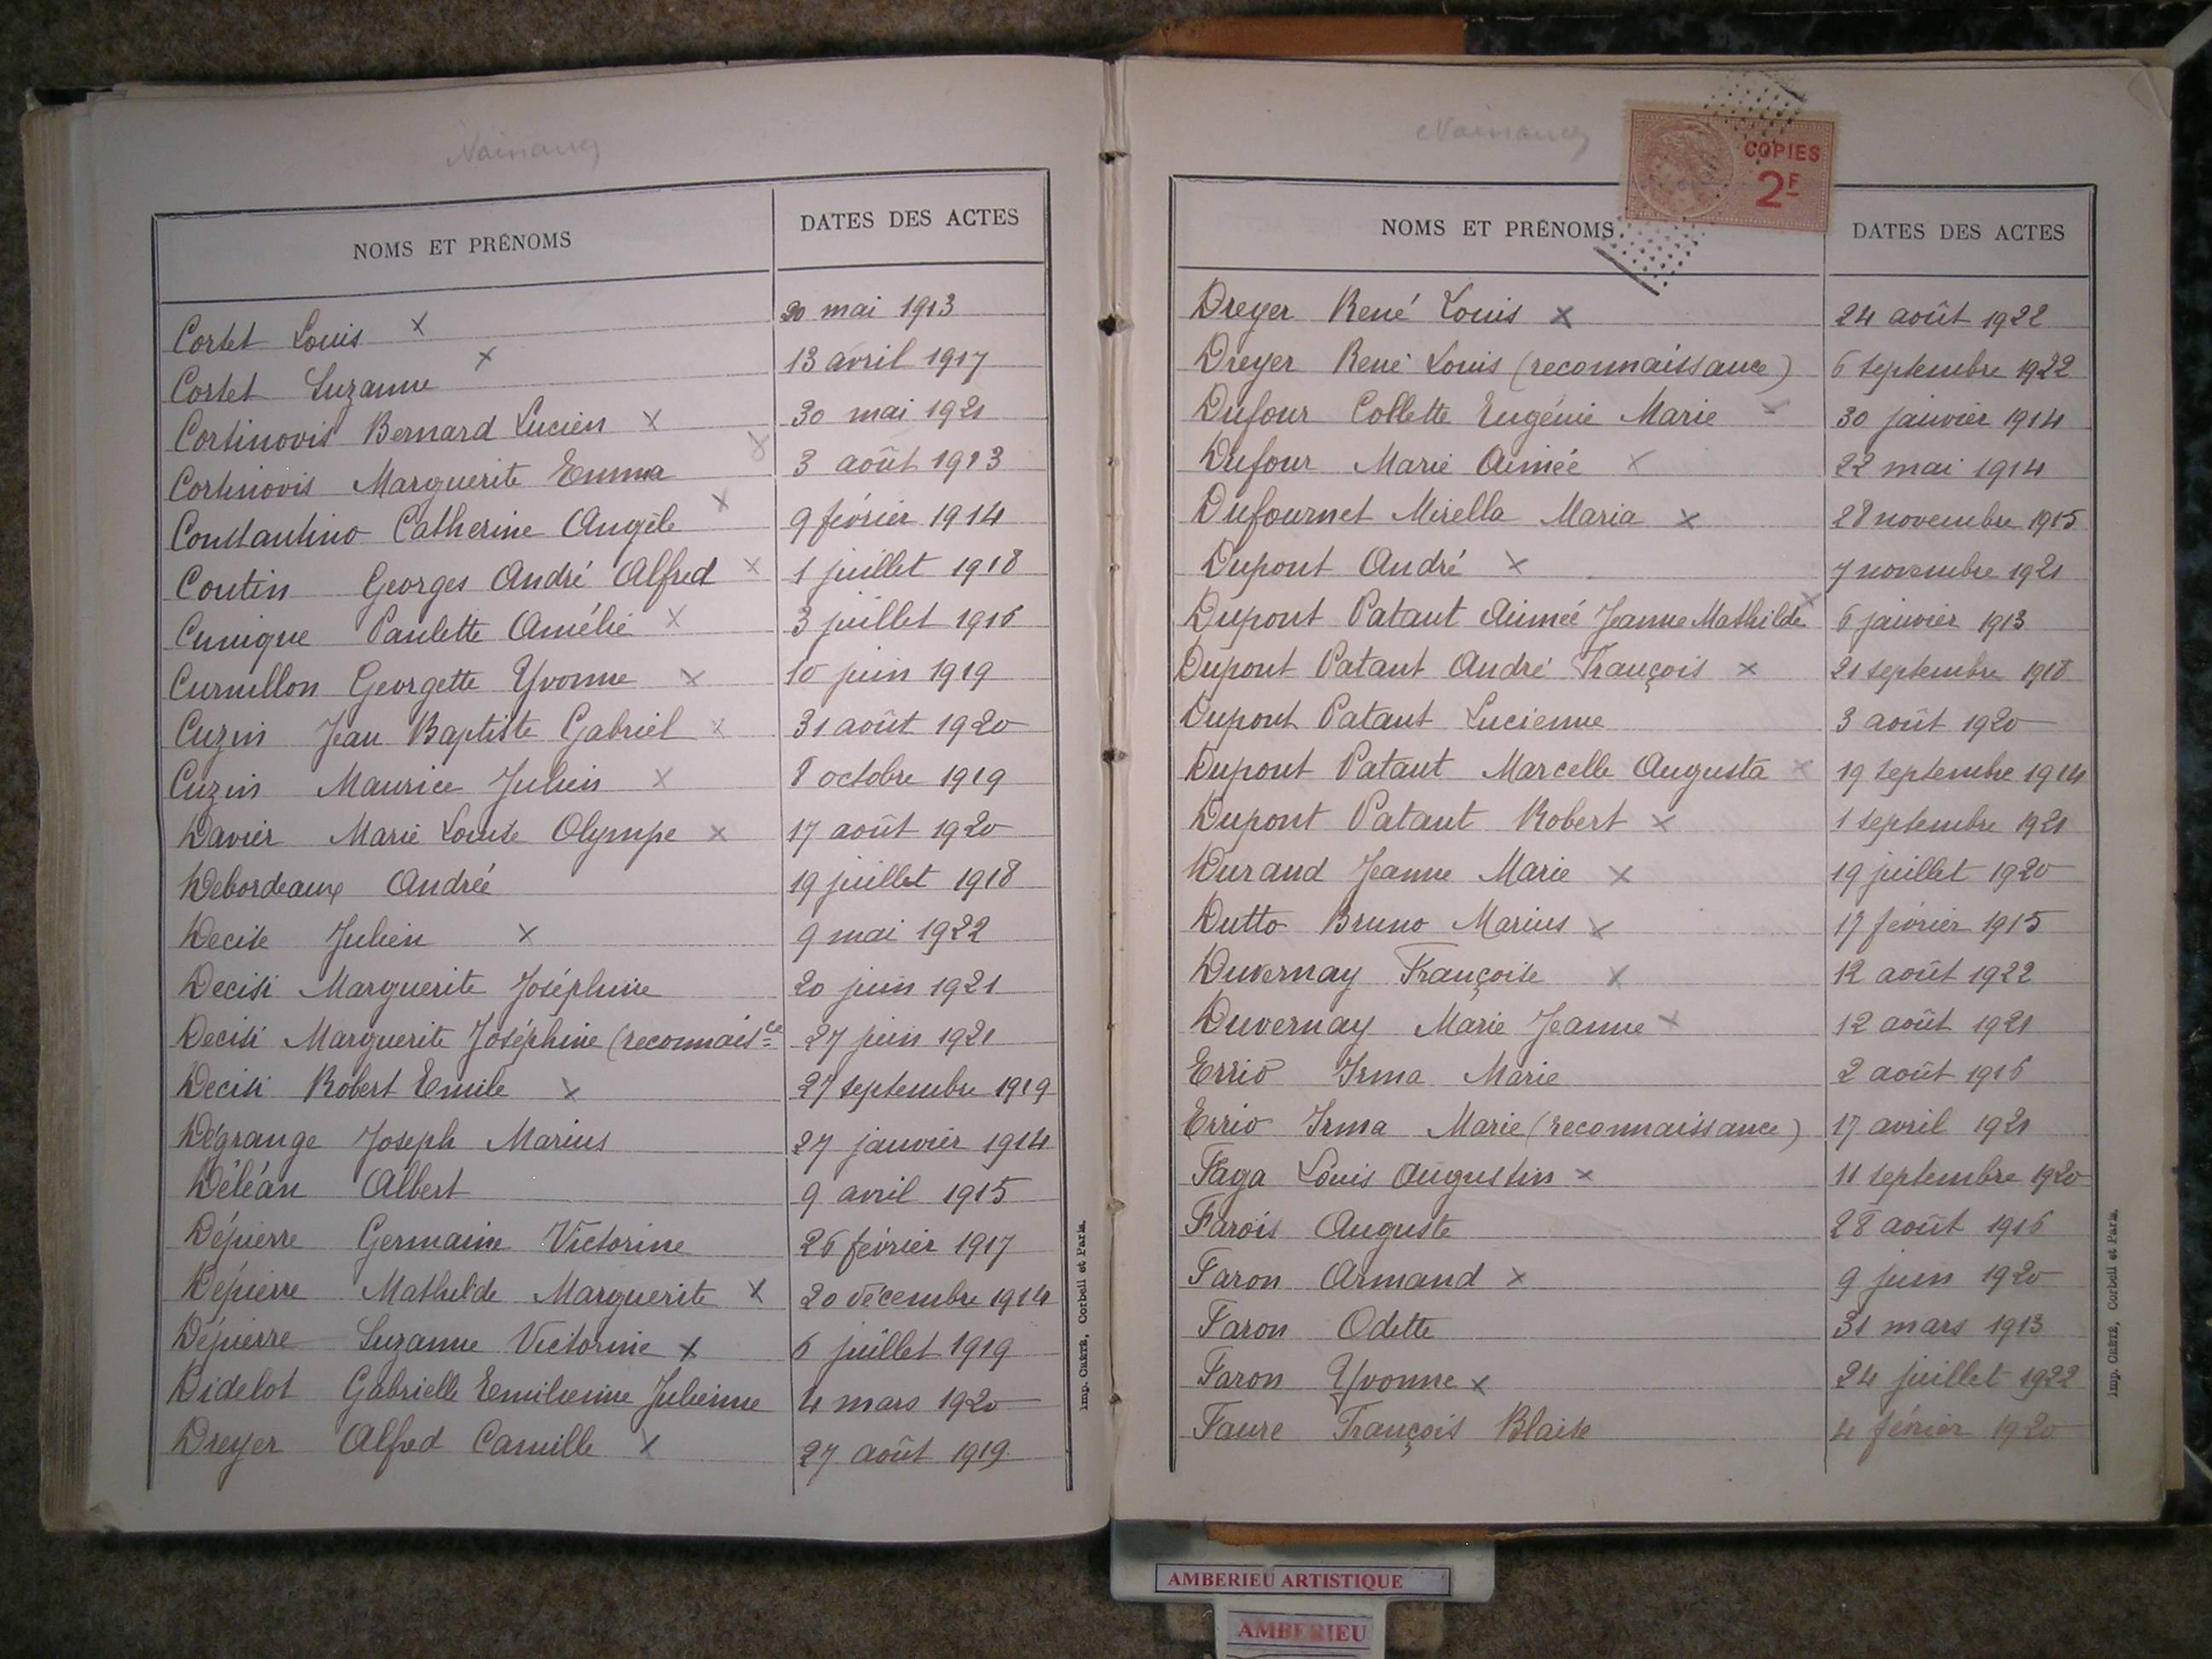 Naissances
NOMS ET PRÉNOMS DATES DES ACTES
Cortet Louis x 20 mai 1913
Cortet Suzanne x 13 avril 1917
Cortinovis Bernard Lucien x 30 mai 1921
Cortinovis Marguerite Emma x 3 août 1913
Constantino Catherine Angèle x 9 février 1914
Coutin Georges André Alfred x 1 juillet 1918
Cunique Paulette Amélie x 3 juillet 1916
Curnillon Georgette Yvonne x 10 juin 1919
Cuzin Jean Baptiste Gabriel x 31 août 1920
Cuzin Maurice Julien x 8 octobre 1919
Davier Marie Louise Olympe x 17 août 1920
Debordeaux Andrée 19 juillet 1918
Decise Julien x 9 mai 1922
Decisi Marguerite Joséphine 20 juin 1921
Decisi Marguerite Joséphine (reconnaisce 27 juin 1921
Decisi Robert Emile x 27 septembre 1919
Dégrange Joseph Marius 27 janvier 1914
Déléan Albert 9 avril 1915
Dépierre Germaine Victorine 26 février 1917
Dépierre Mathilde Marguerite x 20 décembre 1914
Dépierre Suzanne Victorine x 6 juillet 1919
Didelot Gabrielle Emilienne Julienne 4 mars 1920
Dreyer Alfred Camille x 27 août 1919
Imp. CRÉTÉ, Corbeil et Paris.
Naissances
COPIES
2F
NOMS ET PRÉNOMS DATES DES ACTES
Dreyer René Louis x 24 août 1922
Dreyer René Louis (reconnaissance) 6 septembre 1922
Dufour Collette Eugénie Marie x 30 janvier 1914
Dufour Marie Aimée x 22 mai 1914
Dufournet Mirella Maria x 28 novembre 1915
Dupont André x 7 novembre 1921
Dupont Pataut Aimée Jeanne Mathilde x 6 janvier 1913
Dupont Pataut André François x 21 septembre 1918
Dupont Pataut Lucienne 3 août 1920
Dupont Pataut Marcelle Augusta x 19 septembre 1914
Dupont Pataut Robert x 1 septembre 1921
Durand Jeanne Marie x 19 juillet 1920
Dutto Bruno Marius x 17 février 1915
Duvernay Françoise x 12 août 1922
Duvernay Marie Jeanne x 12 août 1921
Errio Irma Marie 2 août 1916
Errio Irma Marie (reconnaissance) 17 avril 1921
Faga Louis Augustin x 11 septembre 1920
Farois Auguste 28 août 1916
Faron Armand x 9 juin 1920
Faron Odette 31 mars 1913
Faron Yvonne x 24 juillet 1922
Faure François Blaise 4 février 1920
Imp. CRÉTÉ, Corbeil et Paris.
AMBERIEU ARTISTIQUE
AMBERIEU